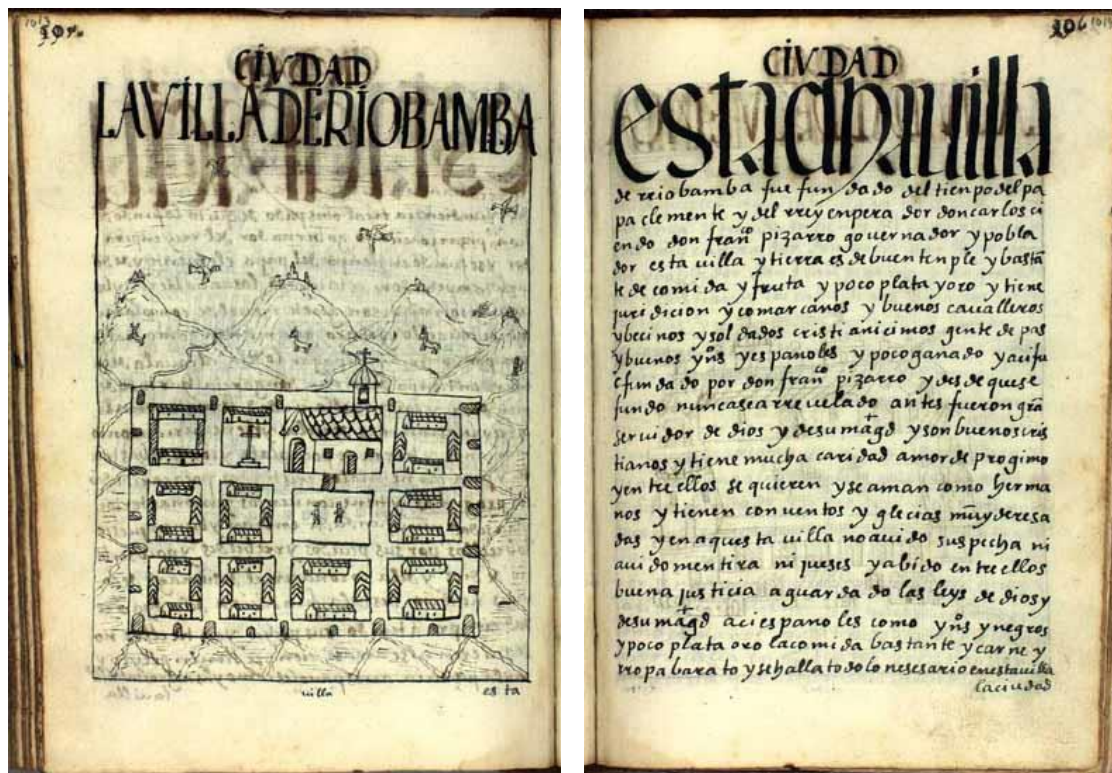 CIVDAD
LA VILLA DE RÍOBAMBA
villa
es ta
CIVDAD
esta dha uilla
de rriobamba fue fundado del tienpo del pa
pa clemente y del rrey enperador don carlos ci
endo don fran.co pizarro gouernador y pobla
dor esta uilla y tierra es de buen tenple y bastan
te de comida y fruta y poco plata y oro y tiene
juridicion y comarcanos y buenos caualleros
y becinos y soldados cristianicimos gente de pas
y buenos yn.os y espanoles y poco ganado y aci fu
e fundado por don fran.co pizarro y desde que se
fundo nunca se a rreuelado antes fueron gran
seruidor de dios y de su mag.d y son buenos cris
tianos y tiene mucha caridad amor de progimo
y entre ellos se quieren y se aman como herma
nos y tienen conuentos y yglecias muy deresa
das y en aquesta uilla no auido suspecha ni
auido mentira ni jueses y abido entre ellos
buena justicia a guardado las leys de dios y
de su mag.d aci espanoles como yn.os y negros
y poco plata oro la comida bastante y carne y
rropa barato y se halla todo lo nesesario en esta uilla
la ciudad